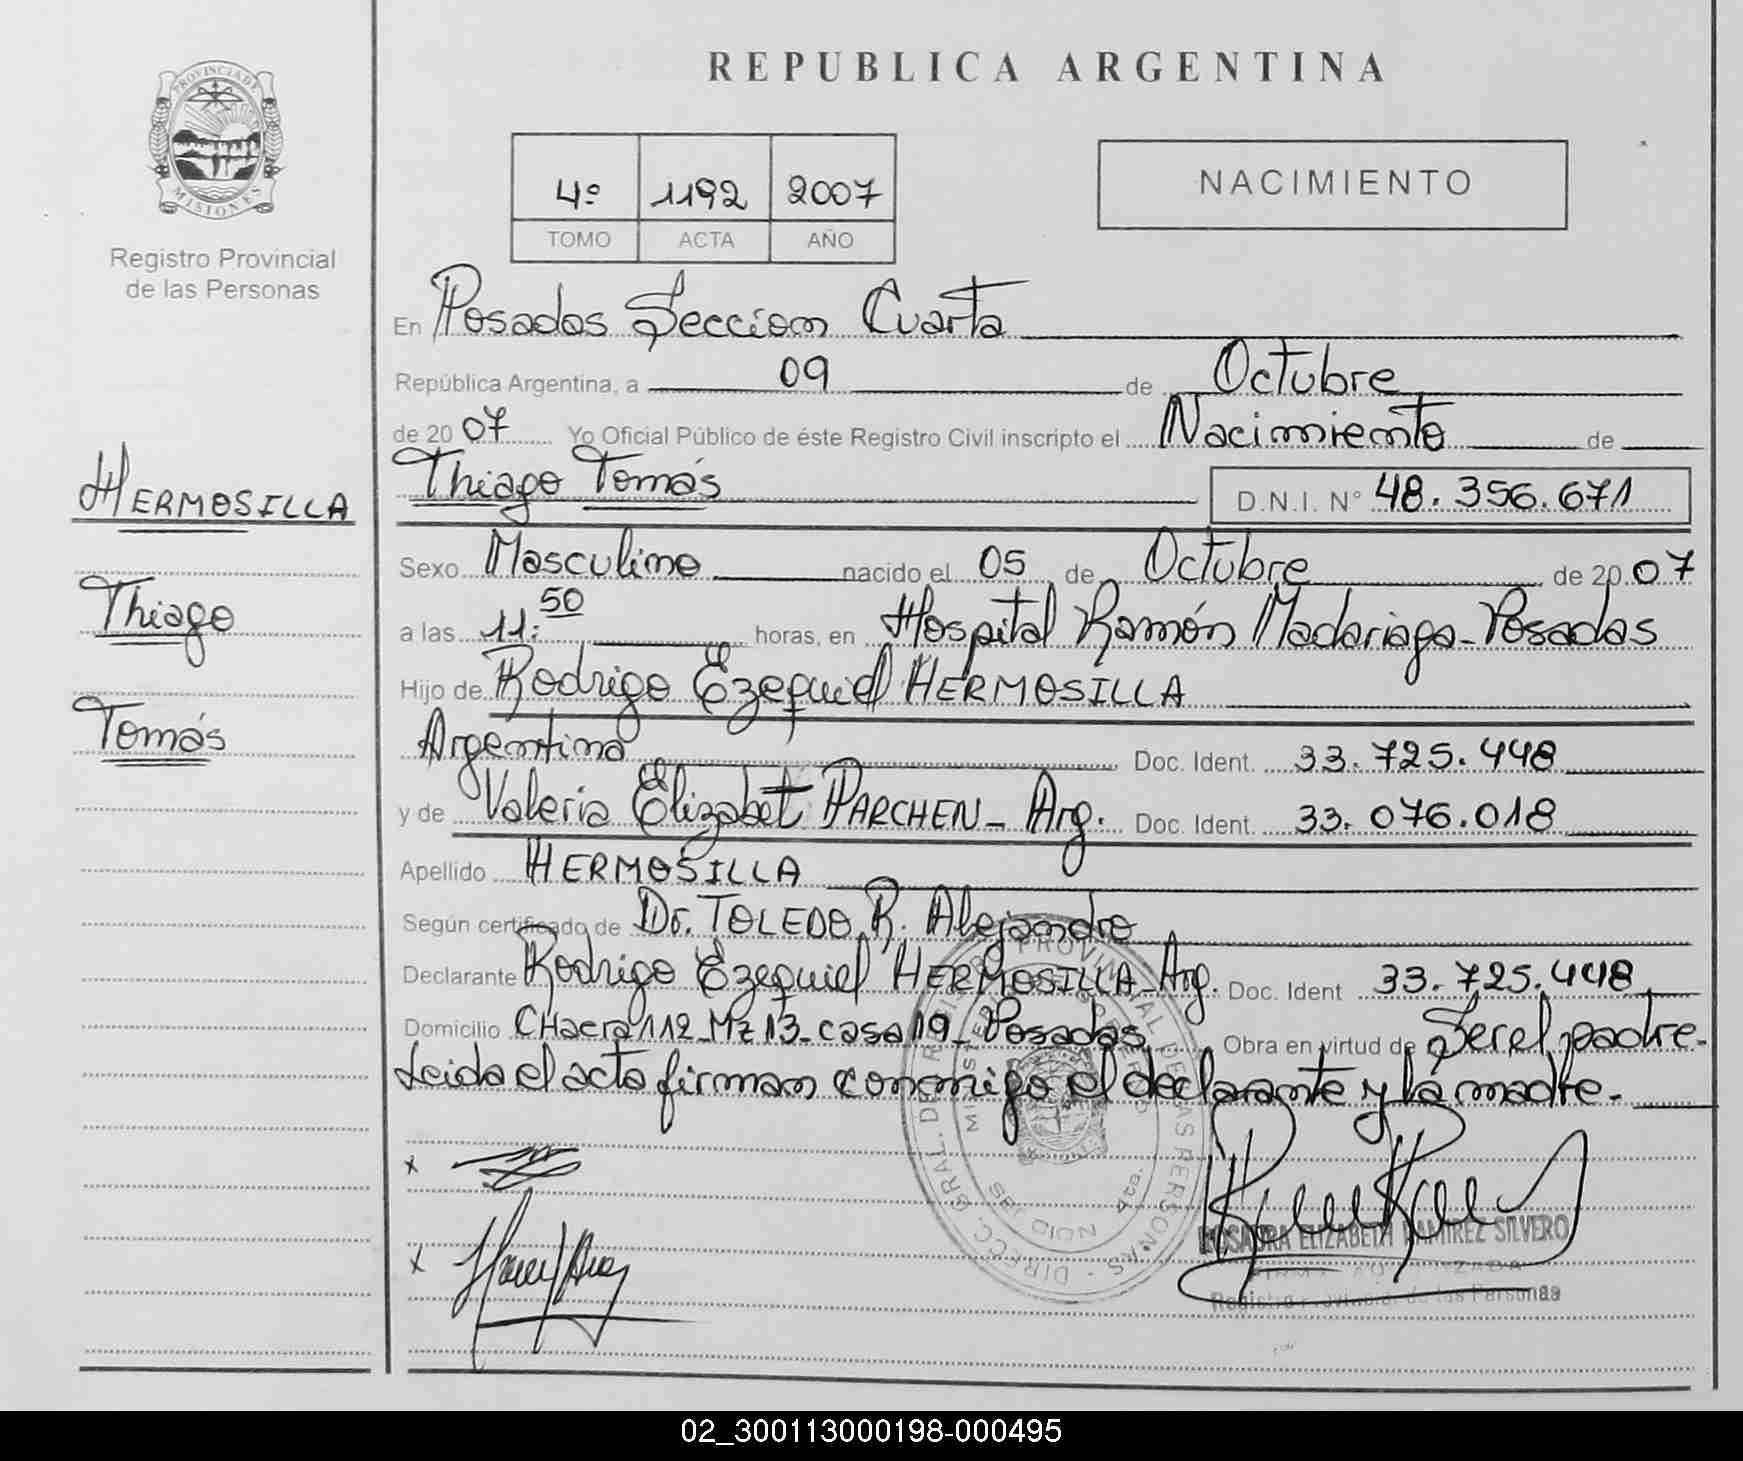 PROVINCIA DE
MISIONES
Registro Provincial
de las Personas
HERMOSILLA
Thiago
Tomás
REPUBLICA ARGENTINA
4º 1192 2007
TOMO ACTA AÑO
NACIMIENTO
En Posadas Sección Cuarta
República Argentina, a 09 de Octubre
de 20 07 Yo Oficial Público de éste Registro Civil inscripto el Nacimiento de
Thiago Tomás D.N.I. Nº 48.356.671
Sexo Masculino nacido el 05 de Octubre de 20 07
a las 11:50 horas, en Hospital Ramón Madariaga - Posadas
Hijo de Rodrigo Ezequiel HERMOSILLA
Argentino Doc. Ident. 33.725.448
y de Valeria Elizabet PARCHEN - Arg. Doc. Ident. 33.076.018
Apellido HERMOSILLA
Según certificado de Dr. TOLEDO R. Alejandro
Declarante Rodrigo Ezequiel HERMOSILLA - Arg. Doc. Ident 33.725.448
Domicilio CHacra 112 - Mz 13 - casa 19 - Posadas Obra en virtud de Ser el padre -
Leida el acta firman conmigo el declarante y la madre. -
x
x
DIRECC. GRAL. DEL REGISTRO PROVINCIAL DE LAS PERSONAS
SECCION 4ta.
ROSAURA ELIZABETH RAMIREZ SILVERO
FIRMA AUTORIZADA
Registro Provincial de las Personas
02_300113000198-000495